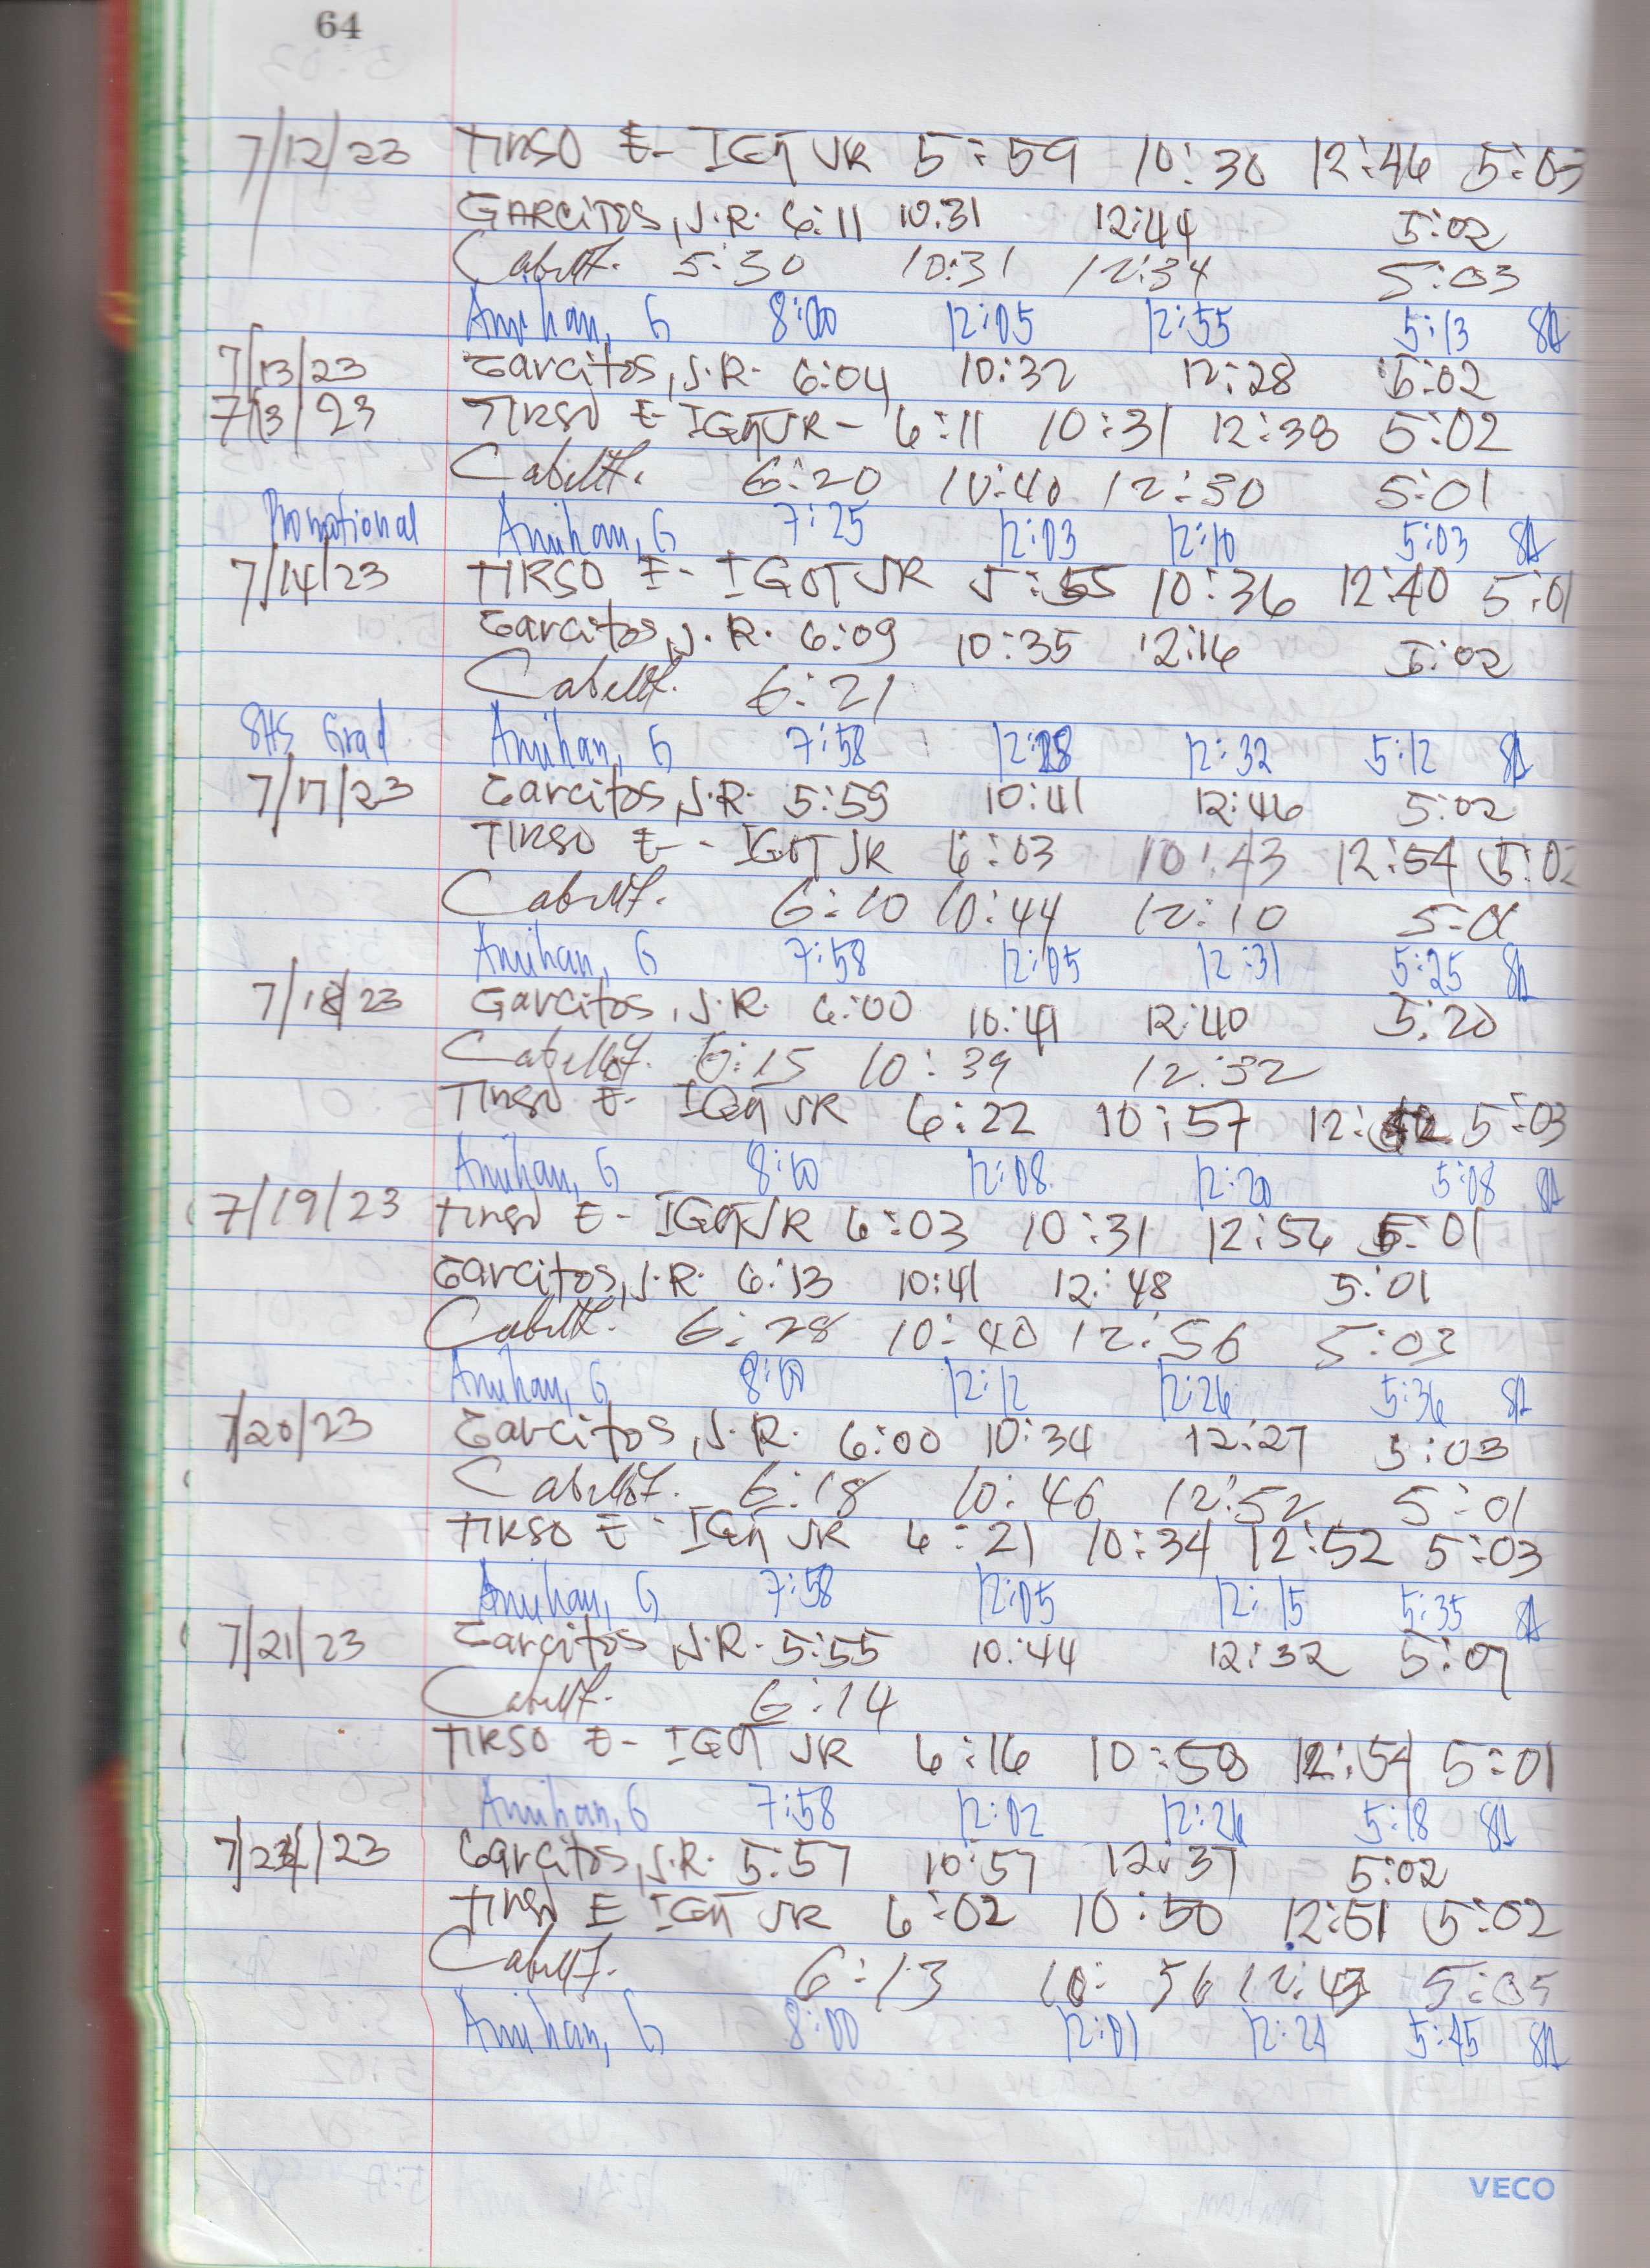 64
7/12/23 TIRSO E- IGOT JR 5:59 10:30 12:46 5:03
GARCITOS, J.R. 6:11 10:31 12:44 5:02
5:30 10:31 12:34 5:03
Amihan, G 8:00 12:05 12:55 5:13
7/13/23 Garcitos, J.R. 6:04 10:32 12:28 5:02
7/13/23 TIRSO E- IGOT JR- 6:11 10:31 12:38 5:02
6:20 10:40 12:50 5:01
Promotional Amihan, G 7:25 12:03 12:10 5:03
7/14/23 TIRSO E- IGOT JR 5:55 10:36 12:40 5:01
Garcitos, J.R. 6:09 10:35 12:16 5:02
6:21
SHS Grad Amihan, G 7:58 12:32 5:12
7/17/23 Garcitos, J.R. 5:59 10:41 12:46 5:02
TIRSO E- IGOT JR 6:03 10:43 12:54 5:02
6:10 10:44 12:10
Amihan, G 7:58 12:05 12:31 5:25
7/18/23 Garcitos, J.R. 6:00 10:41 12:40 5:20
6:15 10:39 12:32
TIRSO E- IGOT JR 6:22 10:57 5:03
Amihan, G 8:00 12:08 12:20 5:08
7/19/23 TIRSO E- IGOT JR 6:03 10:31 12:56 5:01
Garcitos, J.R. 6:13 10:41 12:48 5:01
6:28 10:40 12:56 5:03
Amihan, G 8:00 12:12 12:26 5:36
7/20/23 Garcitos, J.R. 6:00 10:34 12:27 5:03
6:18 10:46 12:52 5:01
TIRSO E- IGOT JR 6:21 10:34 12:52 5:03
Amihan, G 7:58 12:05 12:15 5:35
7/21/23 Garcitos, J.R. 5:55 10:44 12:32 5:07
6:14
TIRSO E- IGOT JR 6:16 10:58 12:54 5:01
Amihan, G 7:58 12:02 12:26 5:18
Garcitos, J.R. 5:57 10:57 12:37 5:02
TIRSO E IGOT JR 6:02 10:50 12:51 5:02
6:13 10:56 12:43 5:05
Amihan, G 8:00 12:01 12:24 5:45
VECO